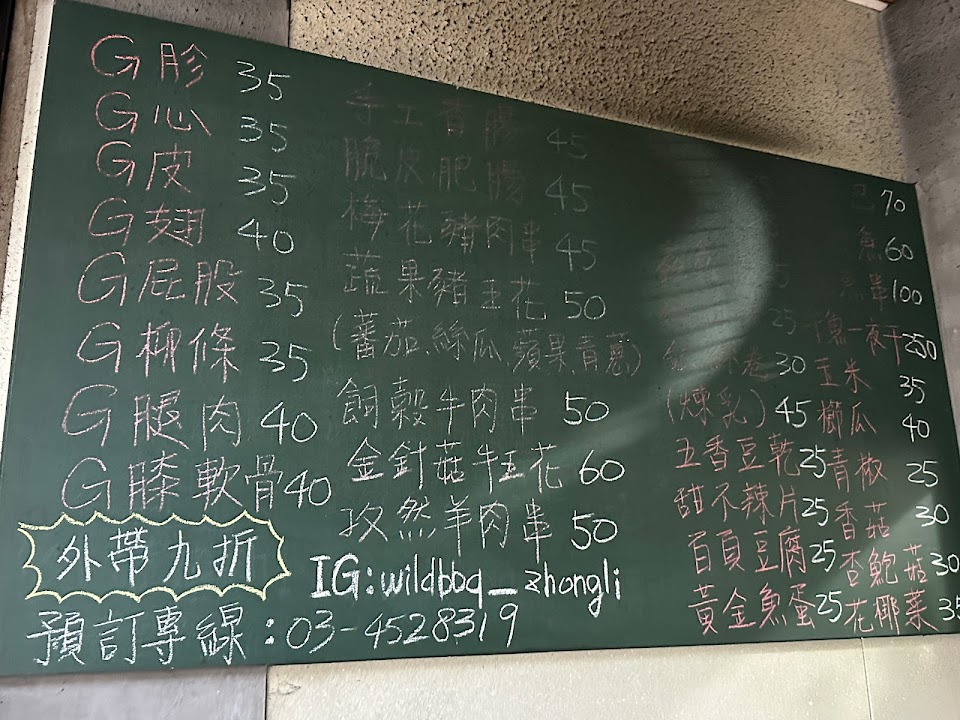 G胗 35
G心 35
G皮 35
G翅 40
G屁股 35
G柳條 35
G腿肉 40
G膝軟骨 40
外帶九折
預訂專線：03-4528319
手工香腸 45
脆皮肥腸 45
梅花豬肉串 45
蔬果豬五花 50
(蕃茄.絲瓜.蘋果.青蔥)
飼穀牛肉串 50
金針菇牛五花 60
孜然羊肉串 50
IG:wildbbq_zhongli
25
30
(煉乳) 45
五香豆乾 25
甜不辣片 25
百頁豆腐 25
黃金魚蛋 25
70
魚 60
串 100
一夜干 250
玉米 35
櫛瓜 40
青椒 25
香菇 30
杏鮑菇 30
花椰菜 35